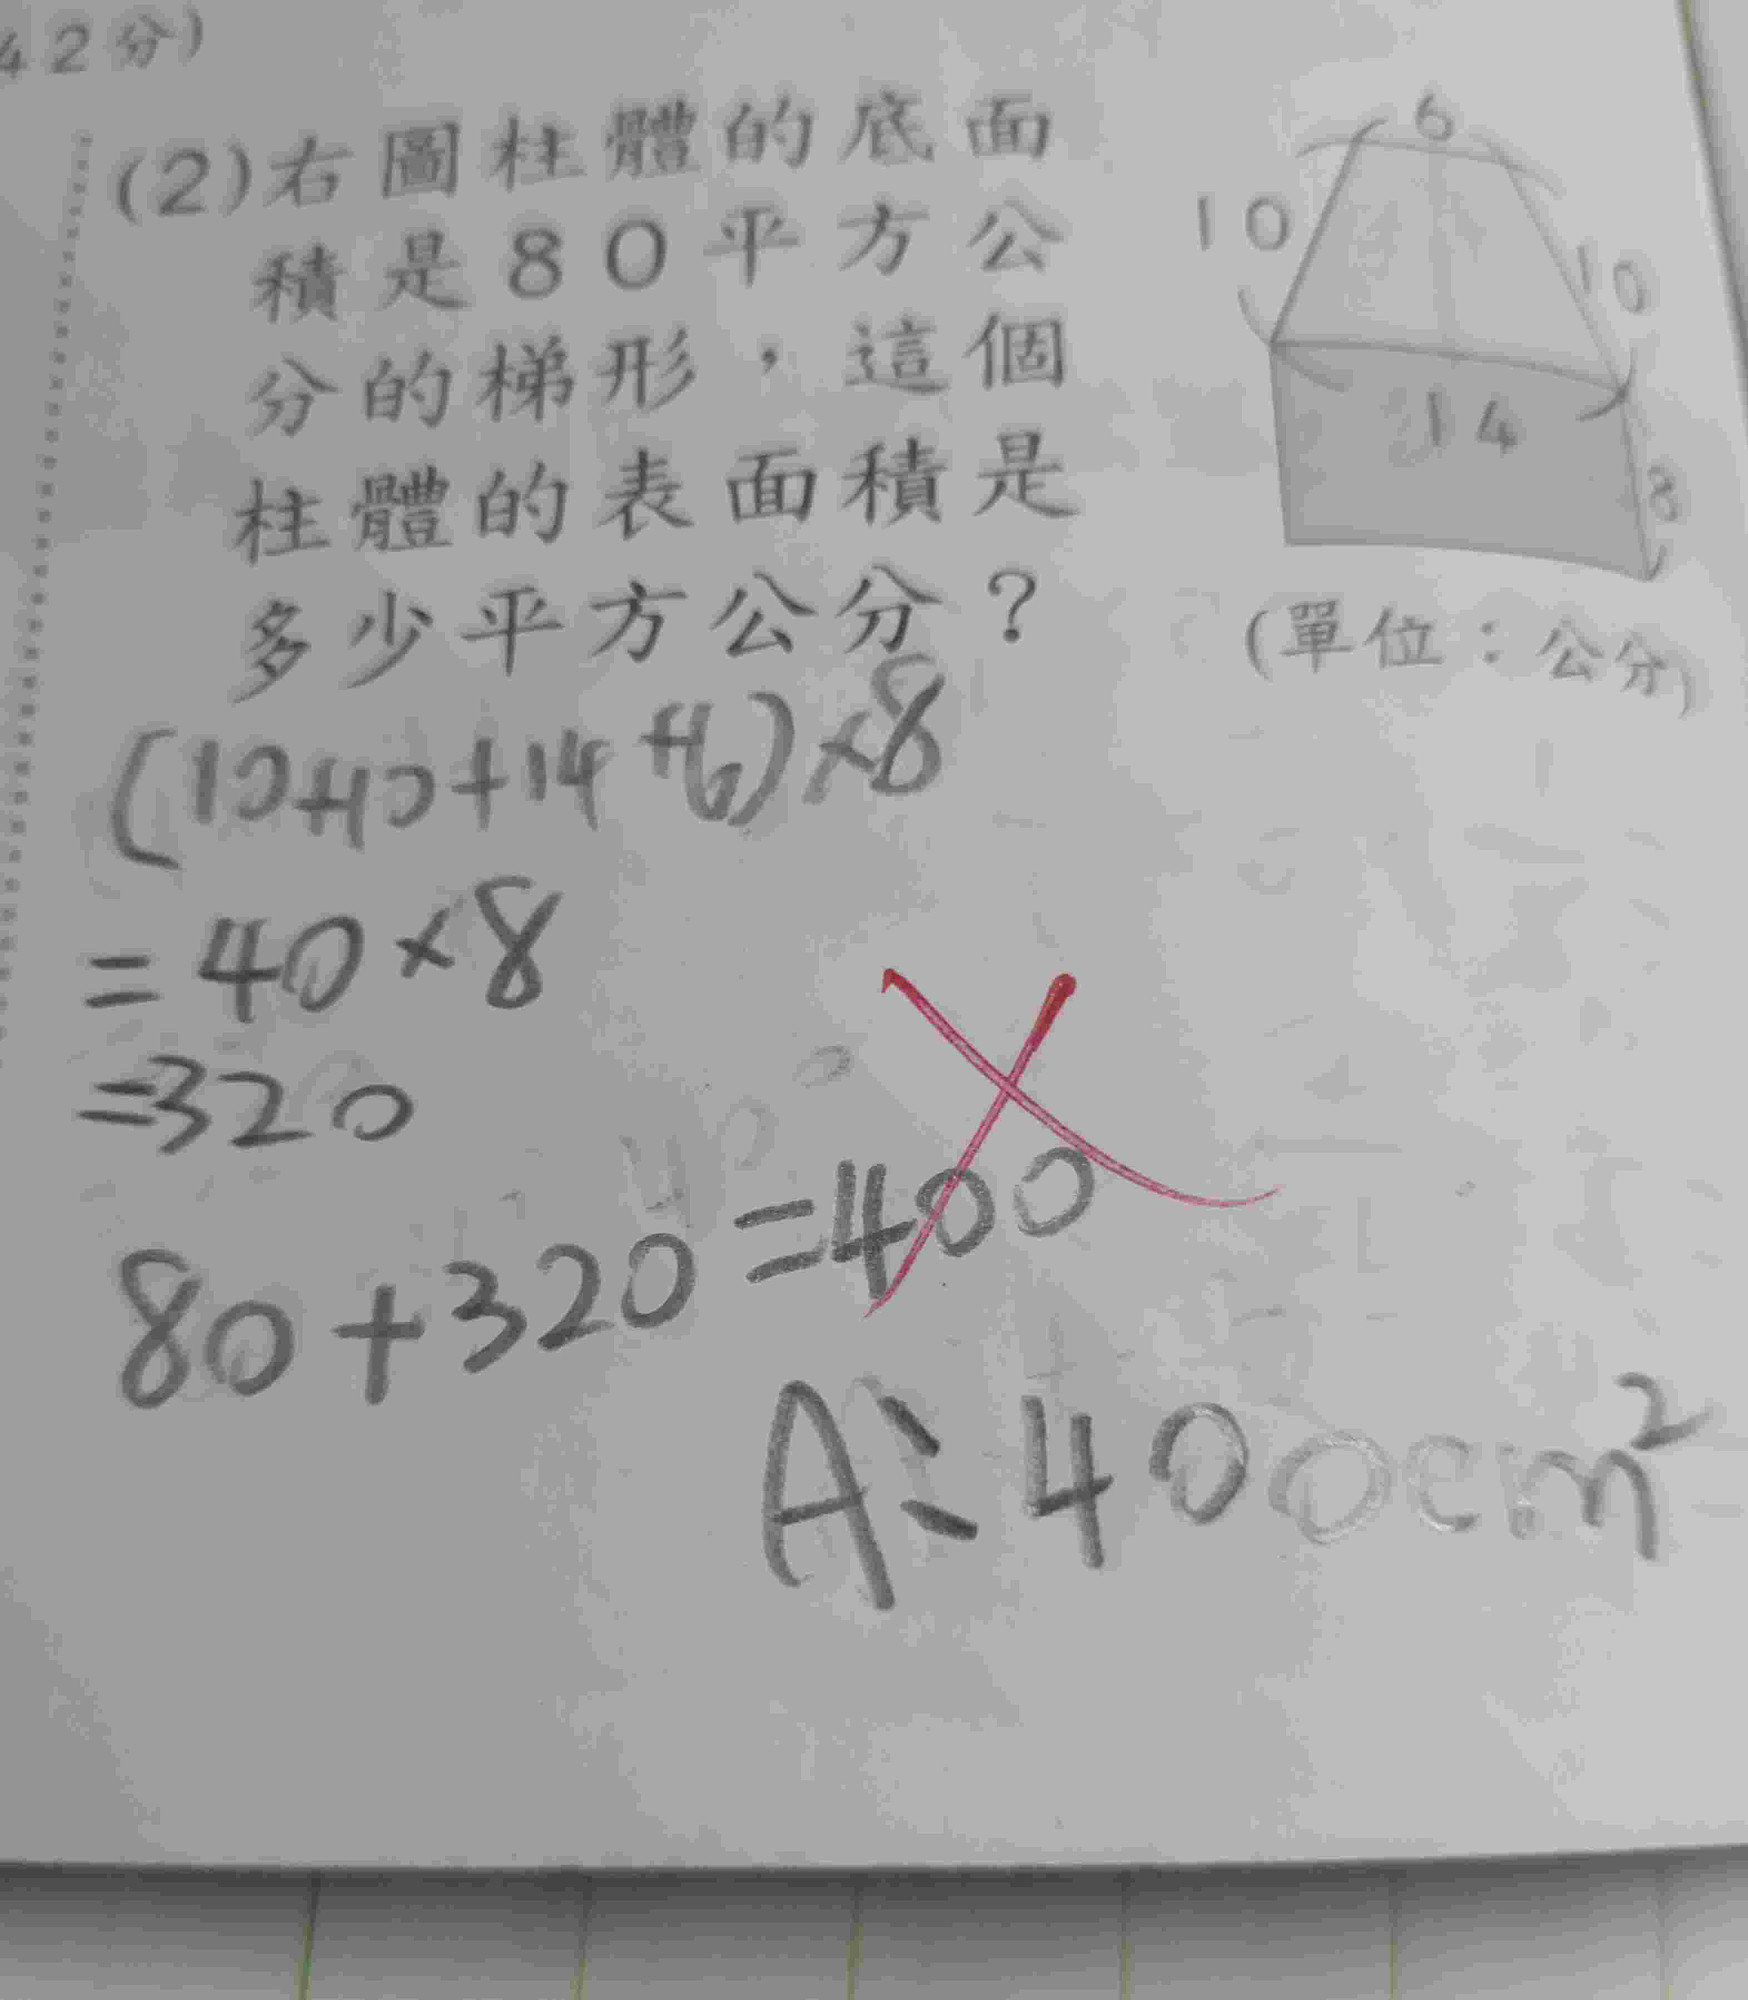 42分)
(2)右圖柱體的底面
積是80平方公
分的梯形，這個
柱體的表面積是
多少平方公分？
6
10
10
14
8
(單位：公分)
(10+10+14+6)×8
=40×8
=320
80+320=400
A:400cm²